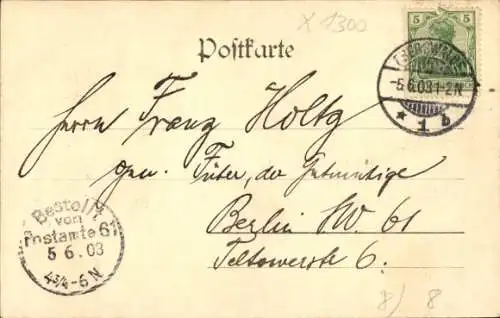 X 1300
Postkarte
5 5
-5.6.03 1-2N
* 1 b
Herrn Franz Holtz
gen. Früter, der Gutmütige
Berlin SW. 61
Teltowerstr 6.
Bestellt
vom
Postamte 61
5 6. 03
4¾-6 N
8) 8